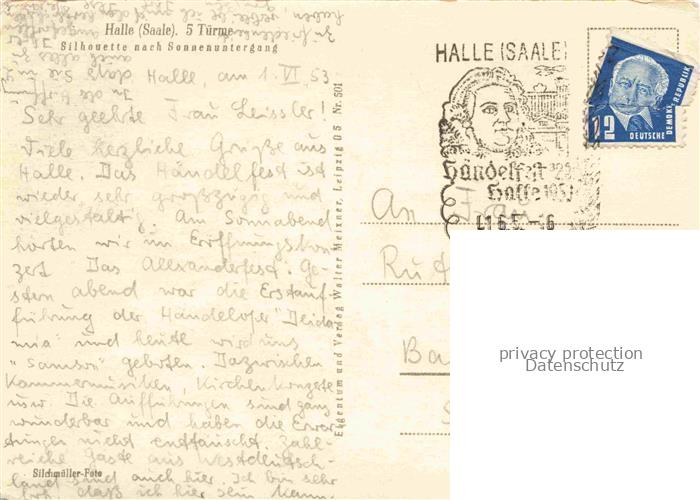 Halle (Saale). 5 Türme
Silhouette nach Sonnenuntergang
Halle, am 1. VI. 53
Sehr geehrte Frau Leissler!
Viele herzliche Grüße aus
Halle. Das Händelfest ist
wieder sehr großzügig und
vielgestaltig. Am Sonnabend
hörten wir im Eröffnungskon-
zert Das Alexanderfest. Ge-
stern abend war die Erstauf-
führung der Händeloper "Deida-
mia" und heute wird uns
"Samson" geboten. Dazwischen
Kammermusiken, Kirchenkonzerte
usw. Die Aufführungen sind ganz
wunderbar und haben die Erwar-
tungen nicht enttäuscht. Zahl-
reiche Gäste aus Westdeutsch-
land sind auch hier. Ich bin sehr
froh, daß ich hier sein kann.
Silchmüller-Foto
Eigentum und Verlag Walter Meixner, Leipzig O 5 Nr. 501
HALLE (SAALE)
Händelfest
Halle
12
DEUTSCHE DEMOKR. REPUBLIK
An Frau
privacy protection
Datenschutz